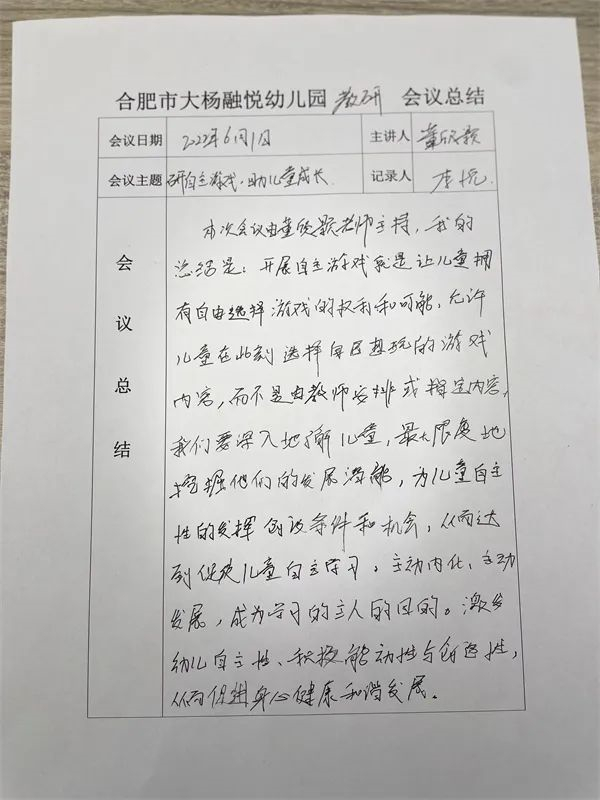 合肥市大杨融悦幼儿园 教研 会议总结
会议日期 2022年6月1日 主讲人 董欣颖
会议主题 研自主游戏，助儿童成长 记录人 李悦
会议总结
本次会议由董欣颖老师主持，我的
总结是：开展自主游戏就是让儿童拥
有自由选择游戏的权利和可能，允许
儿童在此刻选择自己想玩的游戏
内容，而不是由教师安排或指定内容，
我们要深入地了解儿童，最大限度地
挖掘他们的发展潜能，为儿童自主
性的发挥创设条件和机会，从而达
到促使儿童自主学习、主动内化、主动
发展，成为学习的主人的目的。激发
幼儿自主性、积极能动性与创造性，
从而促进身心健康和谐发展。